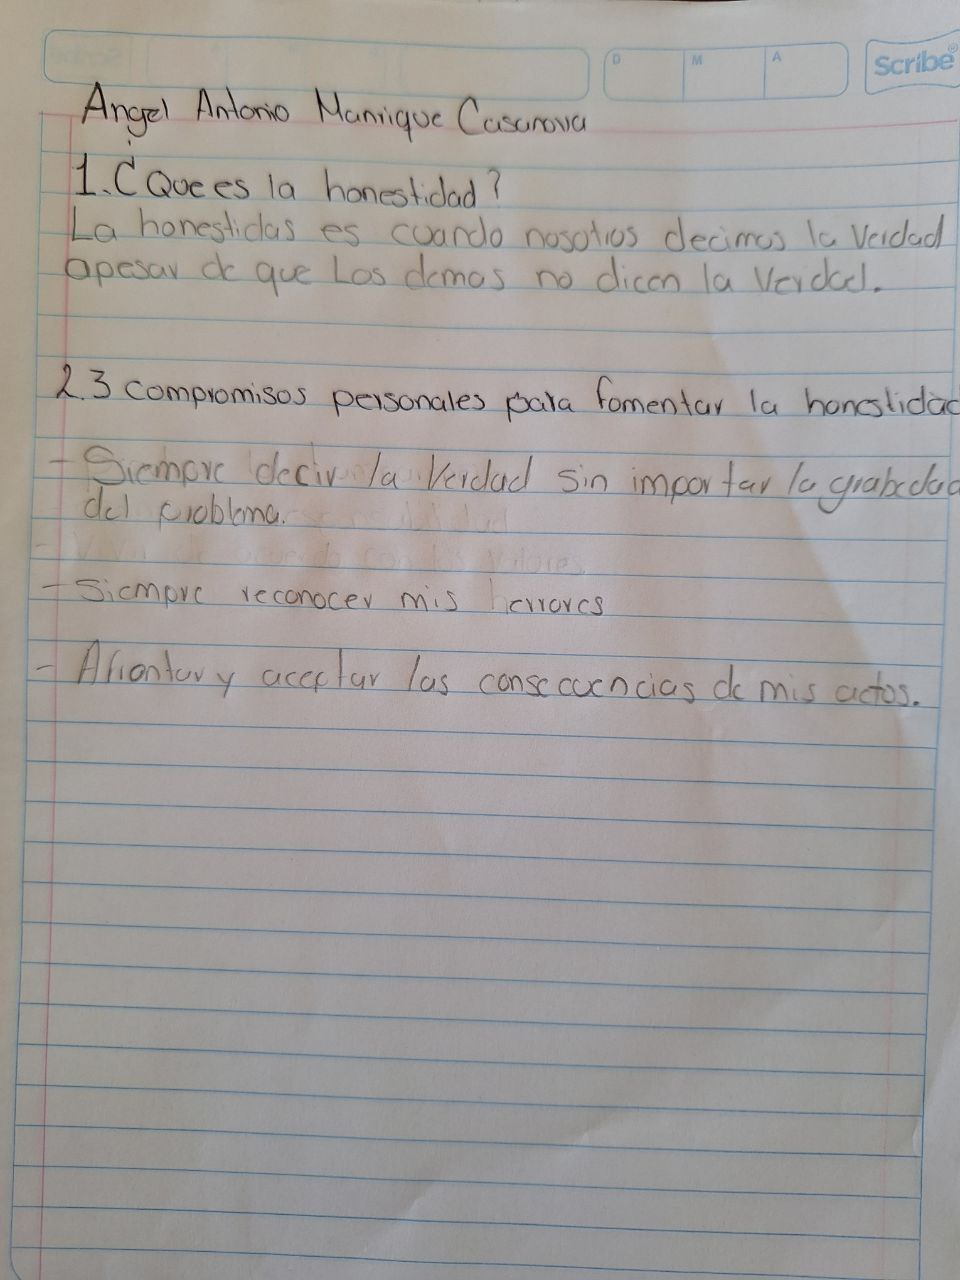 Scribe
D M A
Angel Antonio Manrique Casanova
1. ¿Que es la honestidad?
La honestidas es cuando nosotros decimos la verdad
apesar de que Los demas no dicen la verdad.
2.3 compromisos personales para fomentar la honestidad
- Siempre decir la verdad sin importar la grabedad
del problema.
- Siempre reconocer mis herrores
- Afrontar y aceptar las consecuencias de mis actos.